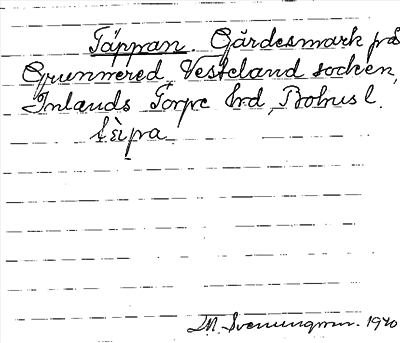 Täppan. Gärdesmark på
Grunnered, Vesteland socken,
Inlands Torpe hrd, Bohus l.
Svenungsson. 1940